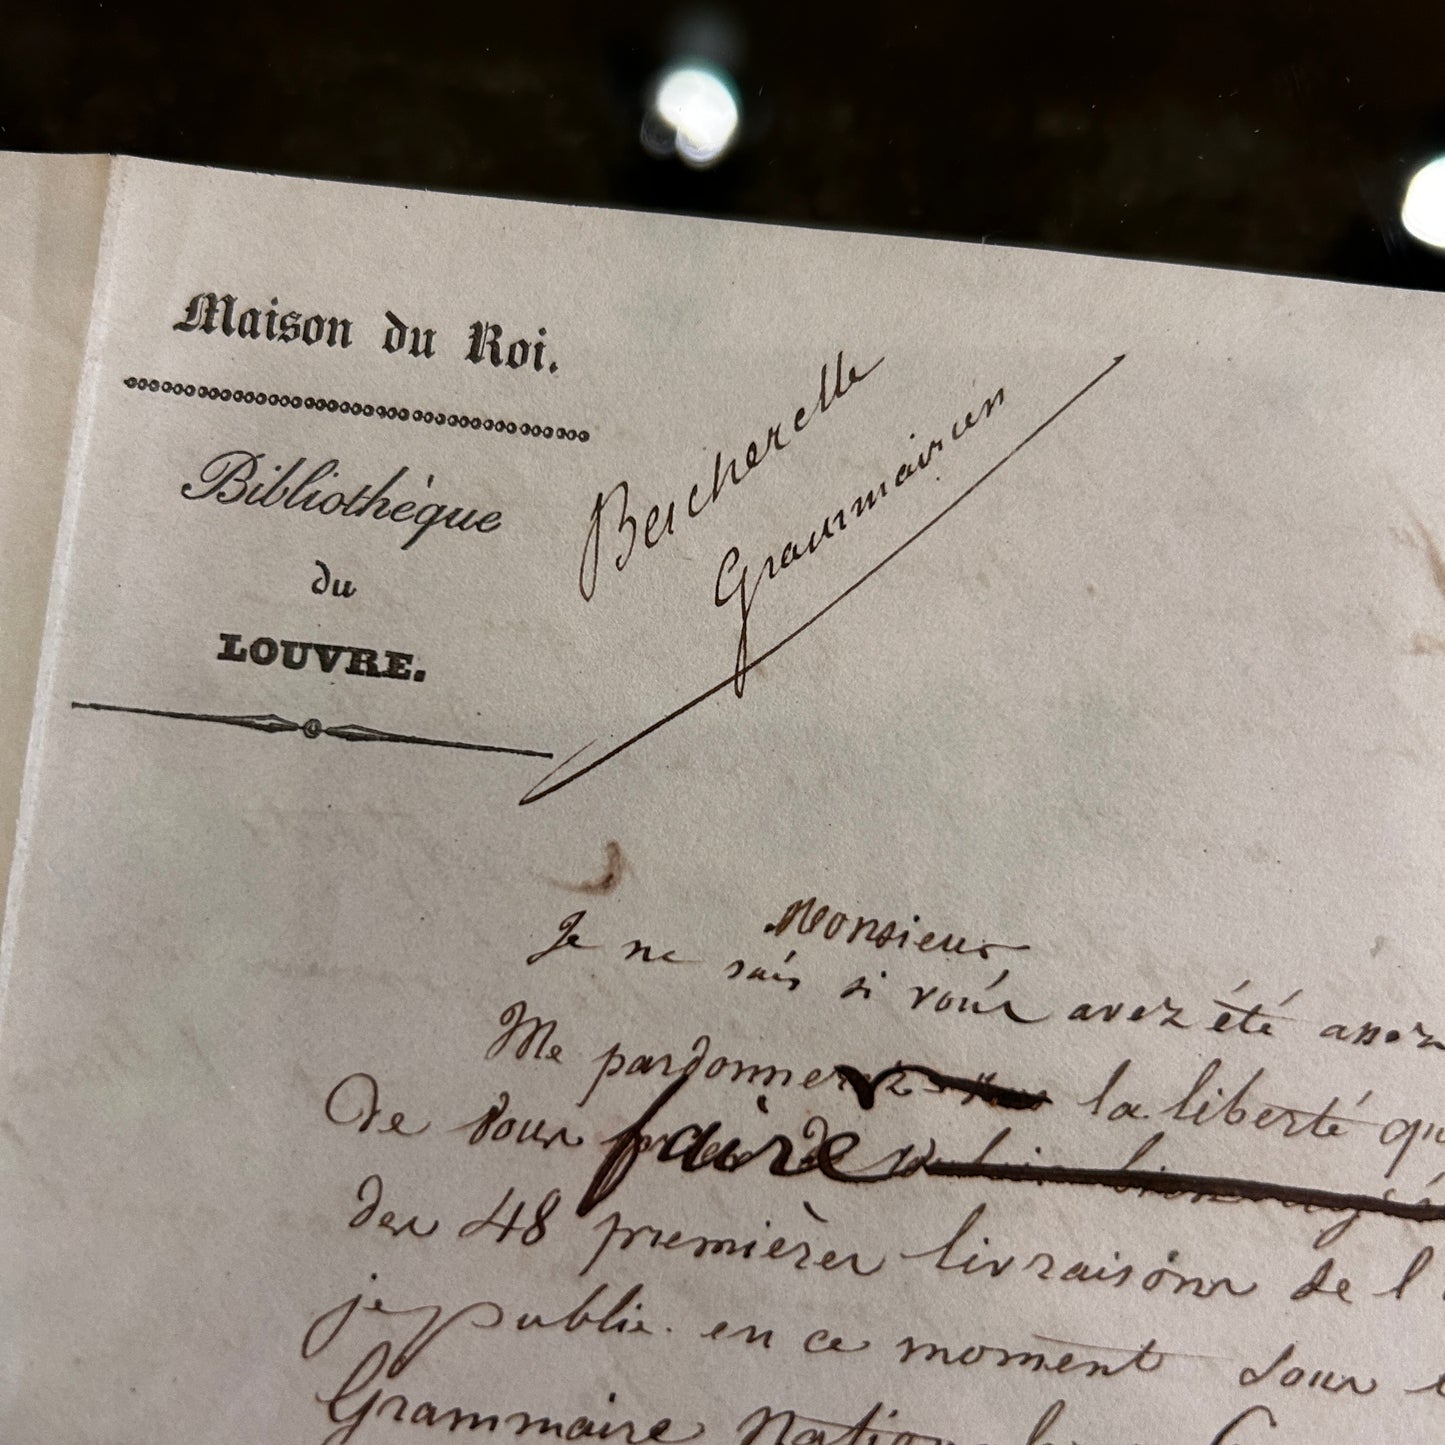 Maison du Roi.
Bibliothèque
du
LOUVRE.
Bescherelle
Grammairien
Monsieur
Je ne sais si vous avez été
Me pardonnerez la liberté
de vous faire
des 48 premières livraisons de l
je publie en ce moment sous
Grammaire Nationale